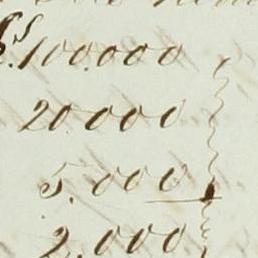 100.000
20.000
5.000
2.000